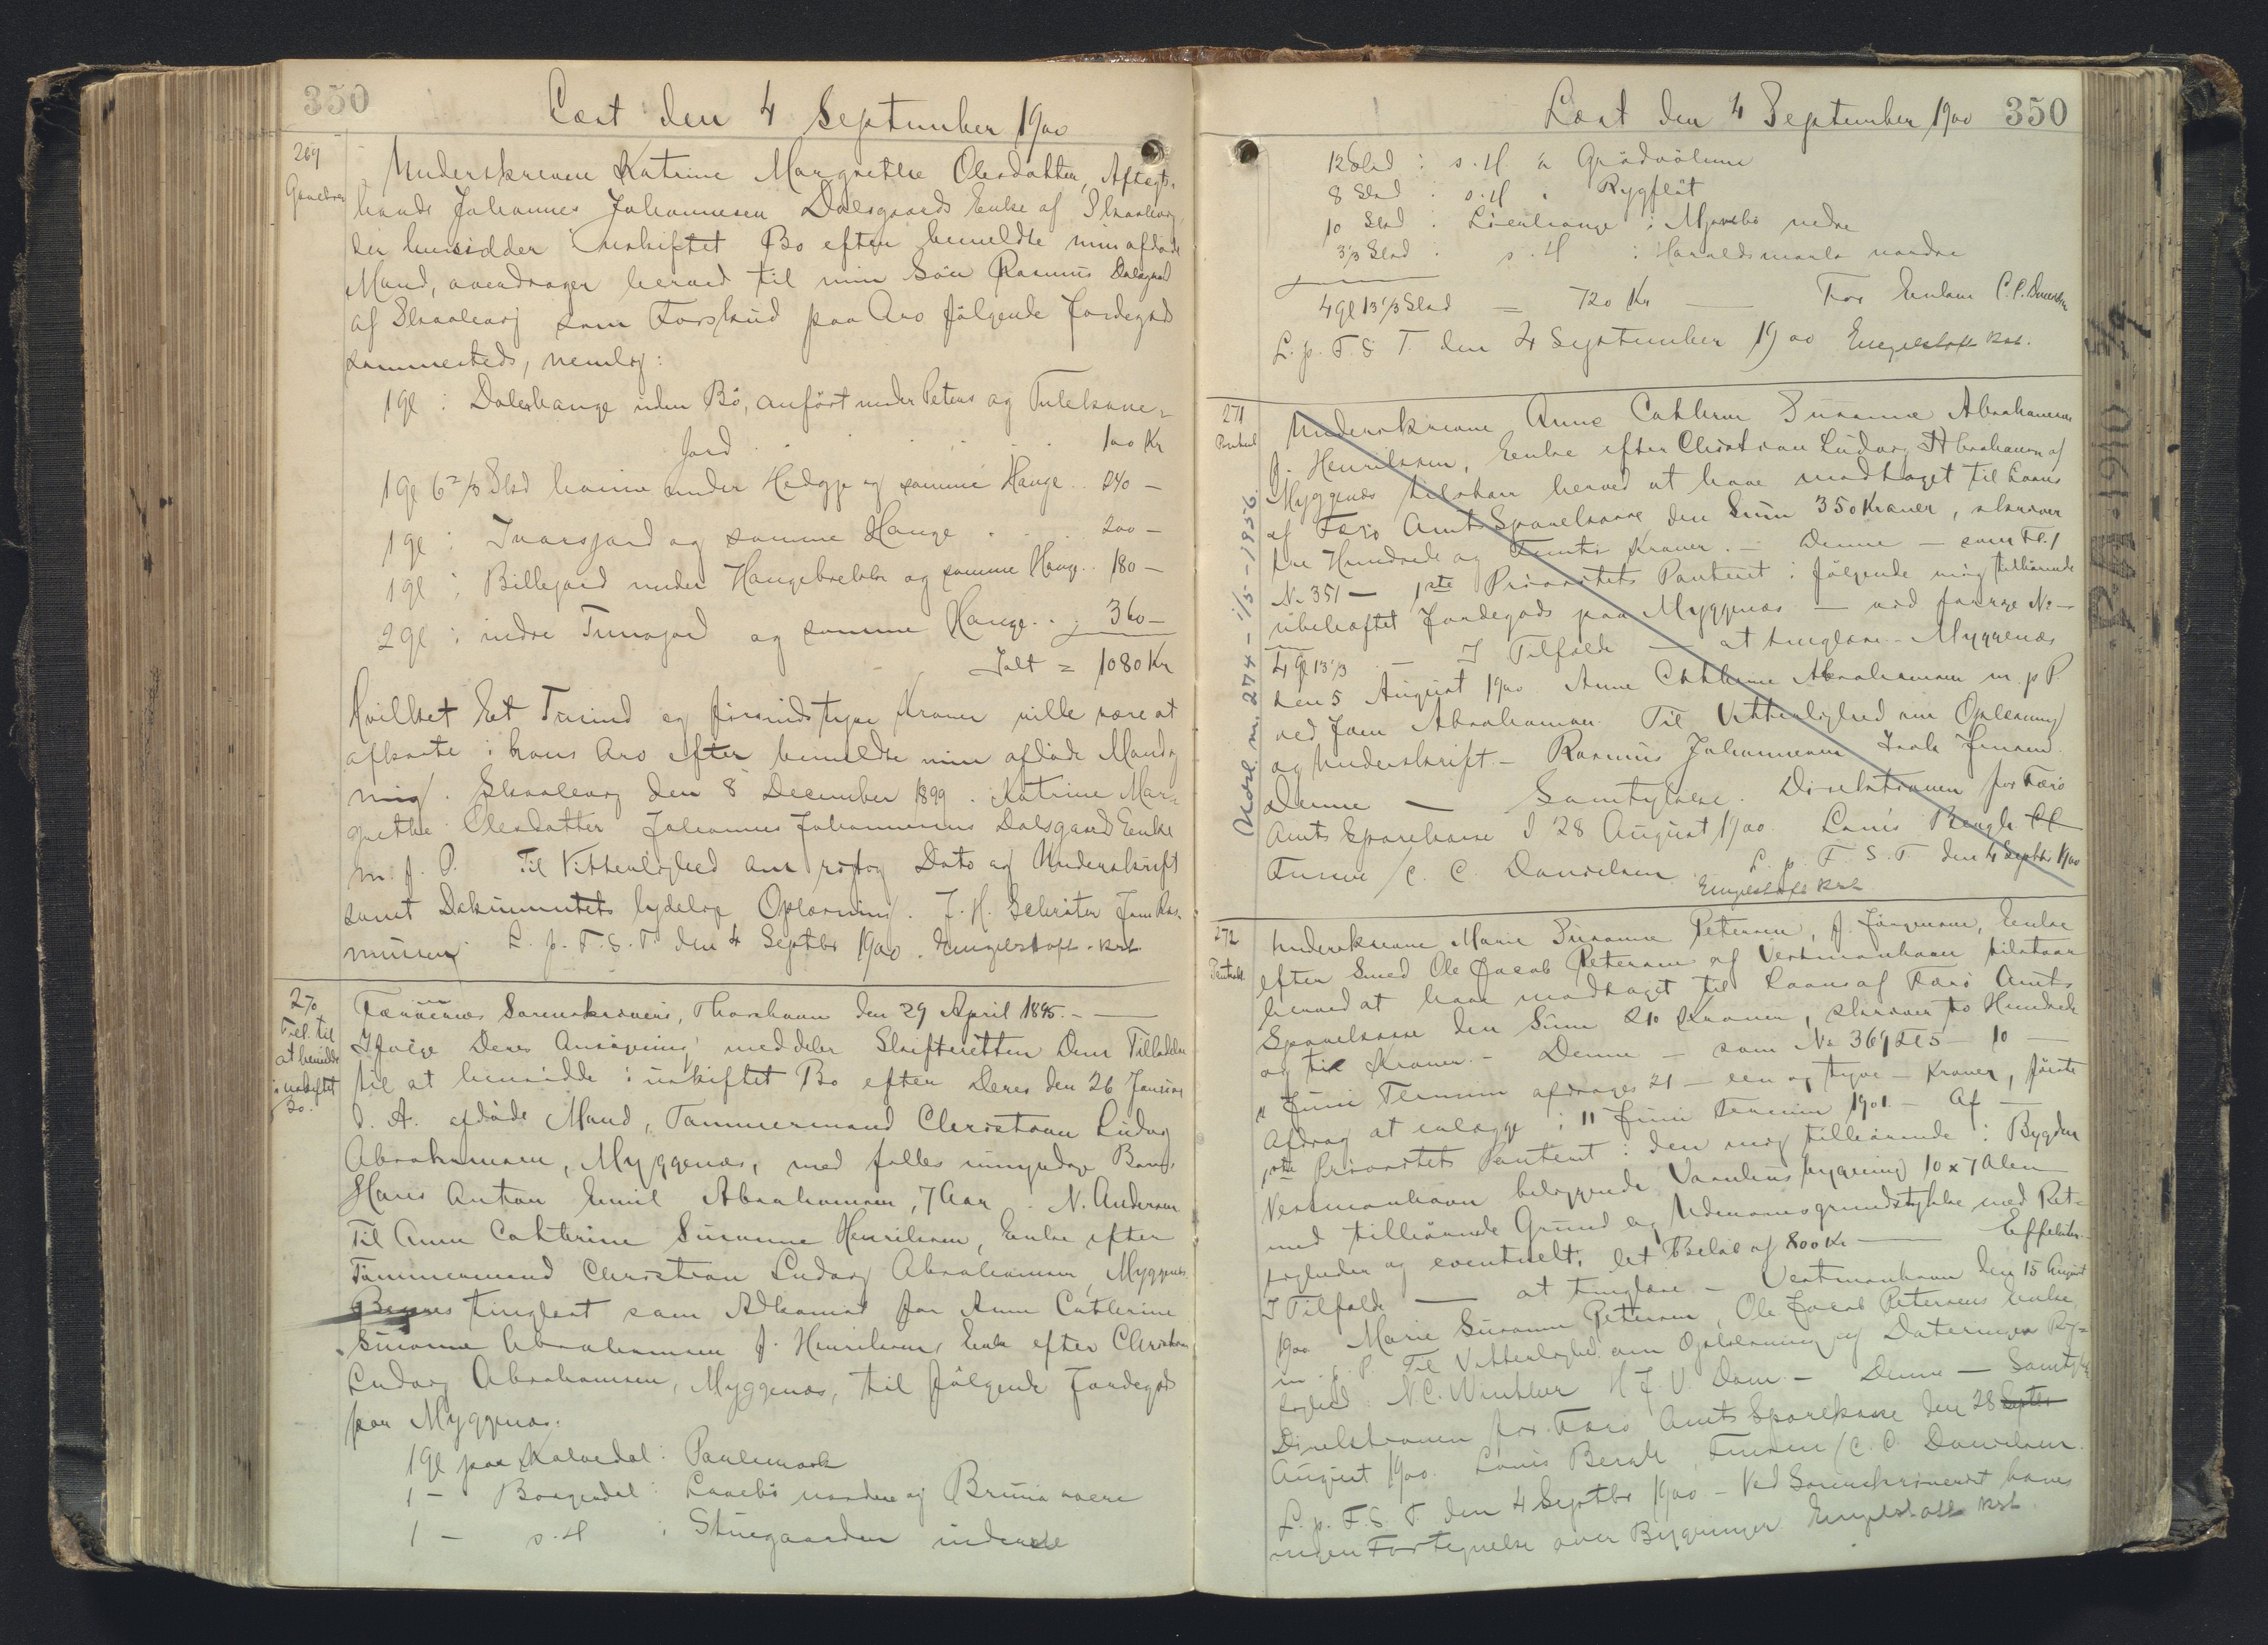 350
Læst den 4 September 1900
269
Gavebrev
Underskrevne Katrine Margrethe Olesdatter, Aftægts-
mands Johannes Johannesen Dalsgaards Enke af Skaalevig
der hensidder i uskiftet Bo efter bemeldte min afdøde
Mand, overdrager herved til min Søn Rasmus Dalsgaard
af Skaalevig som Forskud paa Arv følgende Jordegods
sammesteds, nemlig:
1 Gl : Dalshauge uden Bö, anført under Peters og
Jord . . . . . . 100 Kr
1 Gl 6 2/3 Skd heima under og samme Hauge . . 240 —
1 Gl : Ivarsjord og samme Hauge . . . 200 —
1 Gl : Billejord under og samme Hauge . . 180 —
2 Gl : indre og samme Hauge . . . 360 —
Ialt = 1080 Kr
Hvilket Et Tusind og firsindstyve Kroner ville være at
afkorte i hans Arv efter bemeldte min afdøde Mand og
mig. Skaalevig den 8 December 1899. Katrine Mar-
grethe Olesdatter Johannes Johannesens Dalsgaard Enke
m. f. P. Til Vitterlighed om rigtig Dato og Underskrift
samt Dokumentets lydelige Oplæsning. J. H. Schrøter Ras-
mussen. L. p. F. S. T. den 4 Septbr 1900. Engelstoft kst
270
Till. til
at hensidde
i uskiftet
Bo.
Færøernes Sorenskriveri, Thorshavn den 29 April 1895. —
Ifølge Deres Ansøgning meddeler Skifteretten Dem Tilladelse
til at hensidde i uskiftet Bo efter Deres den 26 Januar
d. A. afdøde Mand, Tømmermand Christian Ludvig
Abrahamsen, Myggenæs, med fælles umyndige Barn:
Hans Anton Emil Abrahamsen, 7 Aar. N. Andersen
Til Anne Cathrine Susanne Henriksen, Enke efter
Tømmermand Christian Ludvig Abrahamsen, Myggenæs
tinglæst som Adkomst for Anne Cathrine
Susanne Abrahamsen f. Henriksen, Enke efter Christian
Ludvig Abrahamsen, Myggenæs, til følgende Jordegods
paa Myggenæs:
1 Gl paa Kalvedal :
1 — Borgardal : nordre og
1 — s. St : Stuegaarden inderste
Læst den 4 September 1900 350
12 Skd : s. St.
8 Skd : s. St : Rygfløt
10 Skd : nedre
3 1/3 Skd : s. St : nordre
4 Gl 13 1/3 Skd = 720 Kr — For Enken
L. p. F. S. T. den 4 September 1900 Engelstoft kst.
271
Panteobl
Underskrevne Anne Cathrine Susanne Abrahamsen
f. Henriksen, Enke efter Christian Ludvig Abrahamsen af
Myggenæs tilstaar herved at have modtaget til Laans
af Færø Amts Sparekasse den Sum 350 Kroner, skriver
tre Hundrede og Femti Kroner. — Denne — som
No 351 — 1ste Prioritets Panteret i følgende mig tilhørende
ubehæftet Jordegods paa Myggenæs — ved forrige No —
4 Gl 13 1/3 — I Tilfælde — at tinglæse. — Myggenæs
den 5 August 1900 Anne Cathrine Abrahamsen m. f. P.
ved Joen Abrahamsen. Til Vitterlighed om Oplæsning
og Underskrift. — Rasmus Johannesen Isak Jensen.
Denne — Samtykke. Direktionen for Færø
Amts Sparekasse d 28 August 1900 Louis Bergh
/ C. C. Danielsen L. p. F. S. T. den 4 Septbr 1900
Engelstoft kst
Udsl. nr. 274 — 1/5 — 1956
272
Panteobl.
Underskrevne Marie Susanne Petersen, f. Jørgensen, Enke
efter Smed Ole Jacob Petersen af Vestmanhavn tilstaar
herved at have modtaget til Laans af Færø Amts
Sparekasse den Sum 210 Kroner, skriver to Hundrede
og ti Kroner. — Denne — som No 369 — 10 —
11 Juni Termin afdrages 21 — een og tyve — Kroner, første
Afdrag at erlægge i 11 Juni Termin 1901 — Af —
1ste Prioritets Panteret i den mig tilhørende i Bygden
Vestmanhavn beliggende Vaanhusbygning 10 x 7 Alen
med tilhørende Grund og Udenomsgrundstykke med Ret-
tigheder og eventuelt, det Beløb af 800 Kr — Effekter.
I Tilfælde — at tinglæse — Vestmanhavn den 15 August
1900 Marie Susanne Petersen, Ole Jacob Petersens Enke
m. f. P. Til Vitterlighed om Oplæsning og Dateringens Rig-
tighed. N. C. Winther H J. V. Dam. — Denne — Samtykke
Direktionen for Færø Amts Sparekasse den 28 Septbr
August 1900. Louis Bergh, / C. C. Danielsen.
L. p. F. S. T. den 4 Septbr 1900 — Ved Sorenskriveriet haves
ingen Fortegnelse over Bygninger. Engelstoft kst.